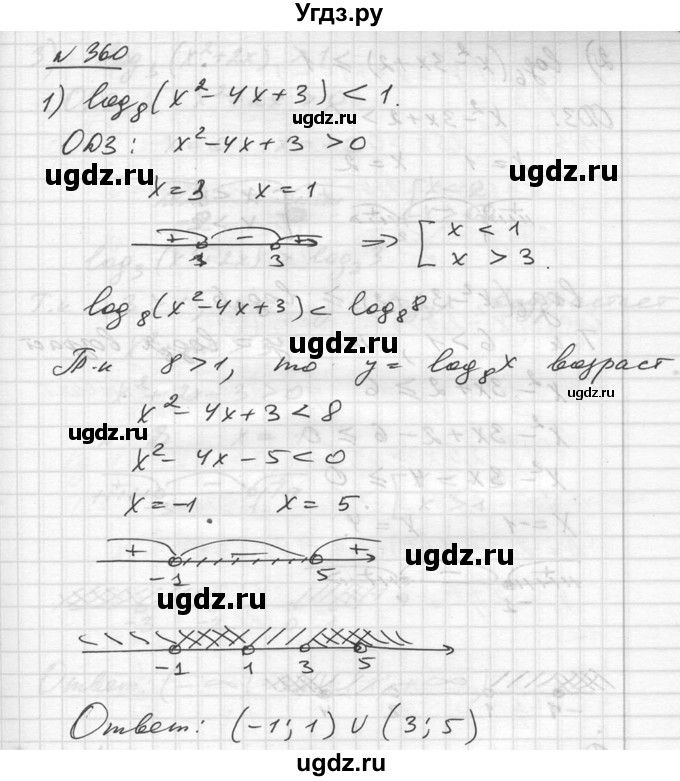 Угдз.ру
N 360
1) log₈(x² - 4x + 3) < 1.
ugdz.ru
ОДЗ: x² - 4x + 3 > 0
ugdz.ru ugdz.ru
x = 3 x = 1
+ - + ⇒ [ x < 1
1 3 x > 3.
log₈(x² - 4x + 3) < log₈8
ugdz.ru
Т.к 8 > 1, то y = log₈x возраст
ugdz.ru
x² - 4x + 3 < 8
ugdz.ru
x² - 4x - 5 < 0
x = -1 x = 5.
+ - +
ugdz.ru
-1 5
ugdz.ru
-1 1 3 5
ugdz.ru
Ответ: (-1; 1) ∪ (3; 5)
ugdz.ru